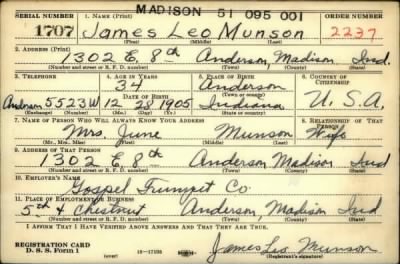 MADISON 51 095 001
SERIAL NUMBER 1. NAME (Print) ORDER NUMBER
1707 James Leo Munson 2237
(First) (Middle) (Last)
2. ADDRESS (Print)
1302 E. 8th Anderson, Madison Ind.
(Number and street or R. F. D. number) (Town) (County) (State)
3. TELEPHONE 4. AGE IN YEARS 5. PLACE OF BIRTH 6. COUNTRY OF CITIZENSHIP
34 Anderson
DATE OF BIRTH (Town or county)
Anderson 5523W 12 28 1905 Indiana U.S.A.
(Exchange) (Number) (Mo.) (Day) (Yr.) (State or country)
7. NAME OF PERSON WHO WILL ALWAYS KNOW YOUR ADDRESS 8. RELATIONSHIP OF THAT PERSON
Mrs. June Munson Wife
(Mr., Mrs., Miss) (First) (Middle) (Last)
9. ADDRESS OF THAT PERSON
1302 E. 8th Anderson, Madison Ind
(Number and street or R. F. D. number) (Town) (County) (State)
10. EMPLOYER'S NAME
Gospel Trumpet Co
11. PLACE OF EMPLOYMENT OR BUSINESS
5th & Chestnut Anderson, Madison Ind
(Number and street or R. F. D. number) (Town) (County) (State)
I AFFIRM THAT I HAVE VERIFIED ABOVE ANSWERS AND THAT THEY ARE TRUE.
REGISTRATION CARD
D. S. S. Form 1 (over) 16—17105 James Leo Munson
(Registrant's signature)